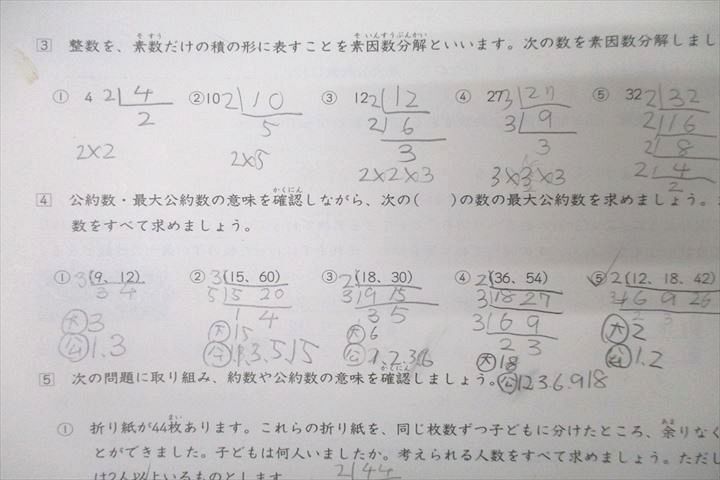 そ すう
そ いんすうぶんかい
3 整数を、素数だけの積の形に表すことを素因数分解といいます。次の数を素因数分解しまし
① 4 2 4 ②10 2 10 ③ 12 2 12 ④ 27 3 27 ⑤ 32 2 32
2 5 2 6 3 9 2 16
3 3 2 8
2×2 2×5 2×2×3 3×3×3 2 4
2
かくにん
4 公約数・最大公約数の意味を確認しながら、次の( )の数の最大公約数を求めましょう。
数をすべて求めましょう。
① 3 (9、12) ② 3 (15、60) ③ 2 (18、30) ④ 2 (36、54) ⑤ 2 (12、18、42)
3 4 5 5 20 3 9 15 3 18 27 6 9
1 4 3 5 3 6 9
大 3 大 15 大 6 2 3 大 2
公 1.3 公 1.3.5.15 公 1.2.3.6 大 18 公 1.2
かくにん
5 次の問題に取り組み、約数や公約数の意味を確認しましょう。 公 1 2 3 6.9 18
まい
あま
① 折り紙が44枚あります。これらの折り紙を、同じ枚数ずつ子どもに分けたところ、余りなく
とができました。子どもは何人いましたか。考えられる人数をすべて求めましょう。ただし
は2人以上いるものとします。 2 44